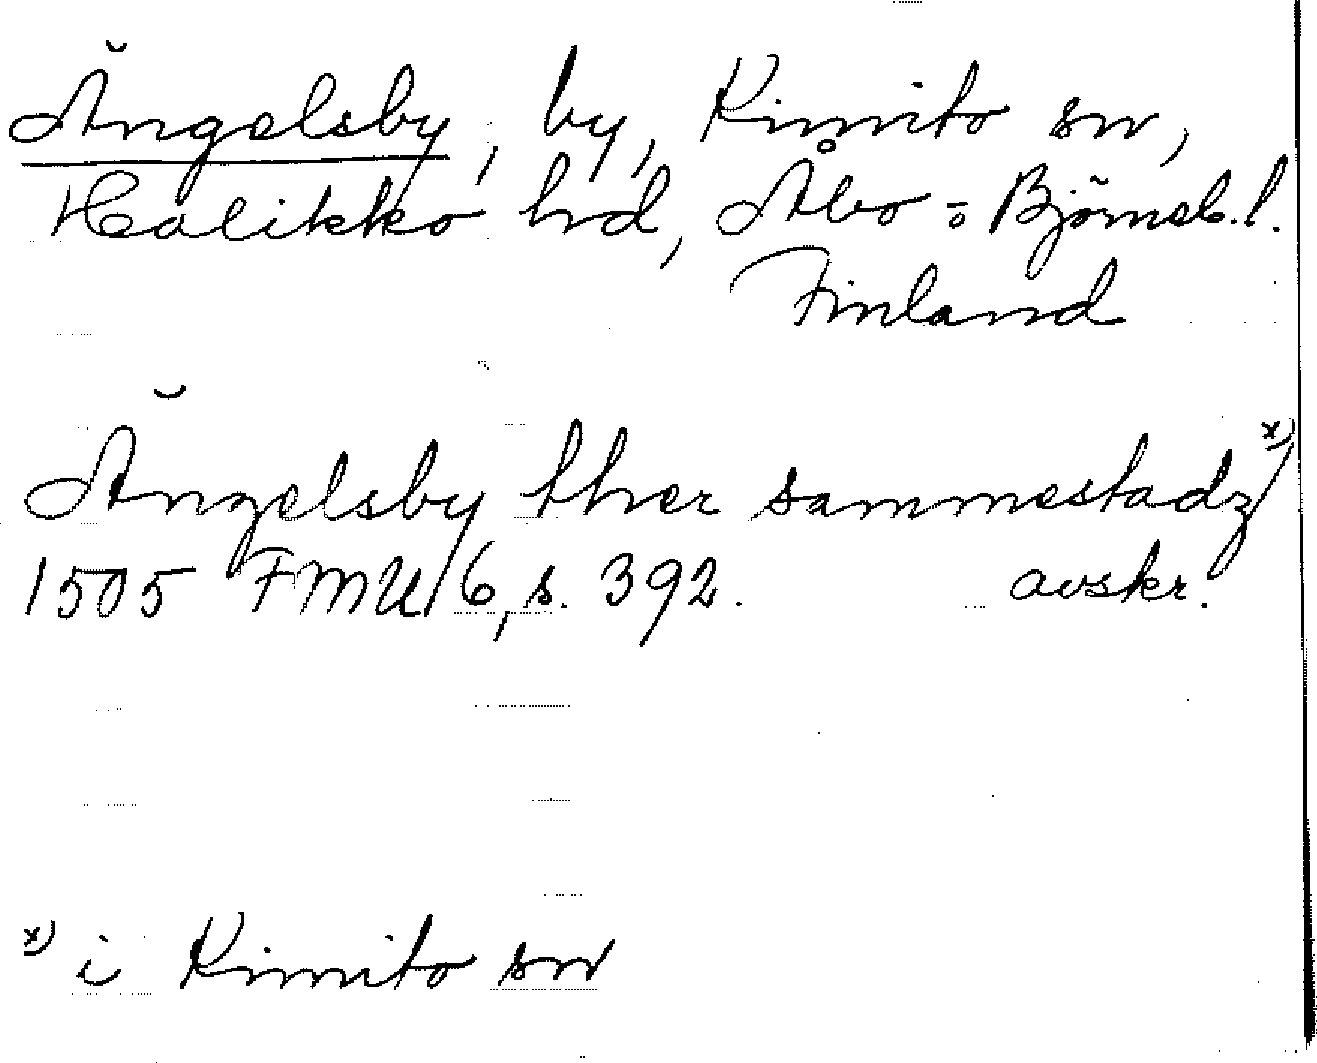 Ängelsby, by, Kimito sn,
Halikko hd, Åbo- o Björneb. l.
Finland
Ängelsby ther sammestadz x)
1505 FMU 6, s. 392. avskr.
x) i Kimito sn